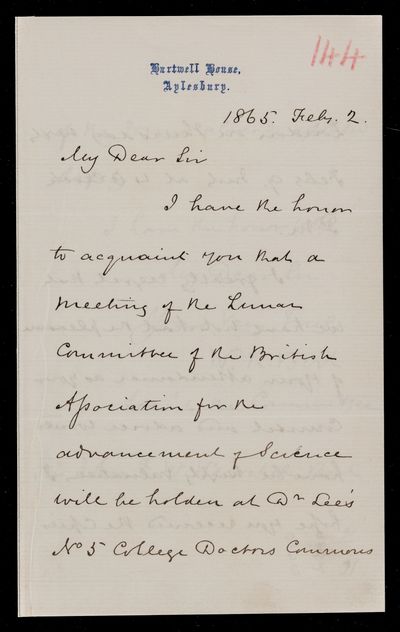 144
Hartwell House,
Aylesbury.
1865. Feby. 2.
My Dear Sir
I have the honor
to acquaint you that a
meeting of the Lunar
Committee of the British
Association for the
advancement of Science
will be holden at Dr Lee's
No 5 College Doctors Commons